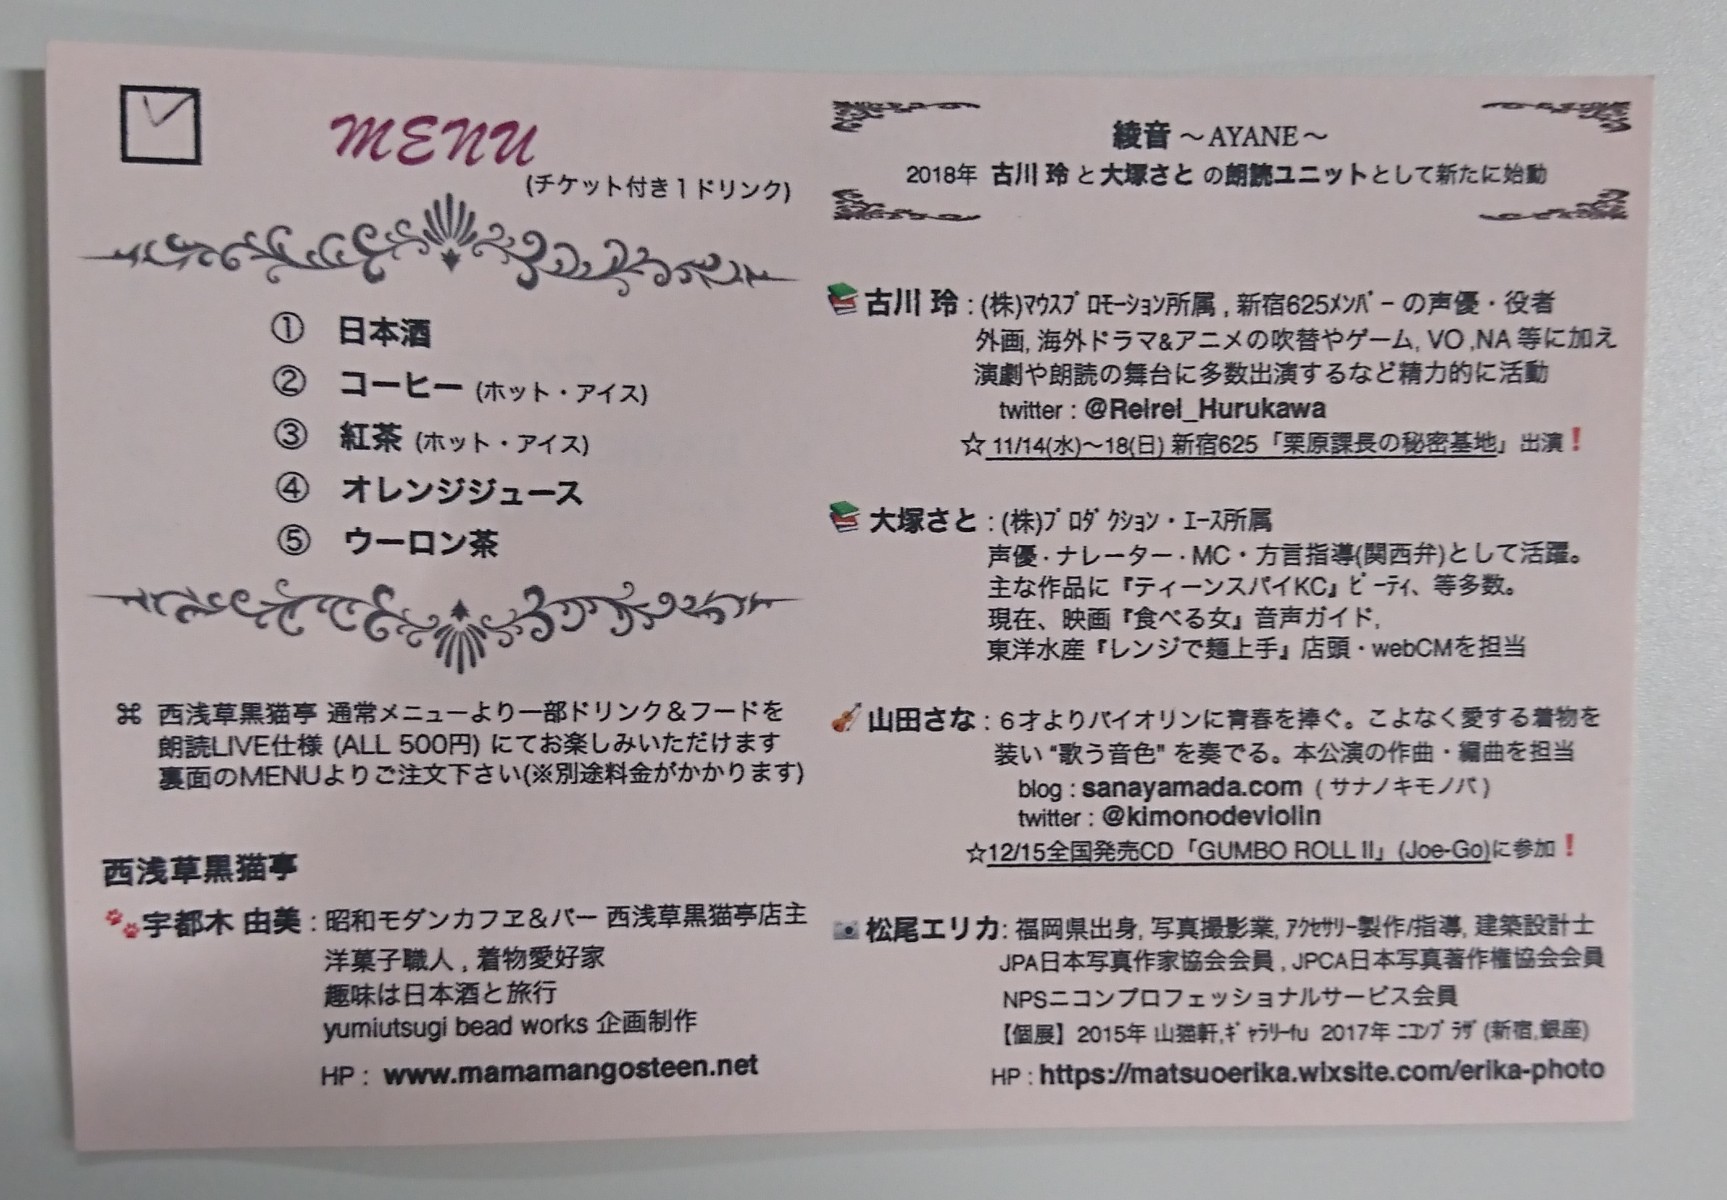 MENU
(チケット付き1ドリンク)
① 日本酒
② コーヒー (ホット・アイス)
③ 紅茶 (ホット・アイス)
④ オレンジジュース
⑤ ウーロン茶
⌘ 西浅草黒猫亭 通常メニューより一部ドリンク&フードを
朗読LIVE仕様 (ALL 500円) にてお楽しみいただけます
裏面のMENUよりご注文下さい(※別途料金がかかります)
西浅草黒猫亭
宇都木 由美 : 昭和モダンカフヱ&バー 西浅草黒猫亭店主
洋菓子職人 , 着物愛好家
趣味は日本酒と旅行
yumiutsugi bead works 企画制作
HP : www.mamamangosteen.net
綾音 〜AYANE〜
2018年 古川 玲 と大塚さと の朗読ユニットとして新たに始動
古川 玲 : (株)ﾏｳｽﾌﾟﾛﾓｰｼｮﾝ所属 , 新宿625ﾒﾝﾊﾞｰ の声優・役者
外画, 海外ドラマ&アニメの吹替やゲーム, VO ,NA 等に加え
演劇や朗読の舞台に多数出演するなど精力的に活動
twitter : @Reirei_Hurukawa
☆ 11/14(水)〜18(日) 新宿625「栗原課長の秘密基地」出演❗
大塚さと : (株)ﾌﾟﾛﾀﾞｸｼｮﾝ・ｴｰｽ所属
声優・ナレーター・MC・方言指導(関西弁)として活躍。
主な作品に『ティーンスパイKC』ﾋﾞｰﾃｨ、等多数。
現在、映画『食べる女』音声ガイド,
東洋水産『レンジで麺上手』店頭・webCMを担当
山田さな : 6才よりバイオリンに青春を捧ぐ。こよなく愛する着物を
装い “歌う音色" を奏でる。本公演の作曲・編曲を担当
blog : sanayamada.com ( サナノキモノバ )
twitter : @kimonodeviolin
☆12/15全国発売CD「GUMBO ROLL II」(Joe-Go)に参加❗
松尾エリカ: 福岡県出身, 写真撮影業, ｱｸｾｻﾘｰ製作/指導, 建築設計士
JPA日本写真作家協会会員 , JPCA日本写真著作権協会会員
NPSニコンプロフェッショナルサービス会員
【個展】2015年 山猫軒,ｷﾞｬﾗﾘｰfu 2017年 ﾆｺﾝﾌﾟﾗｻﾞ (新宿,銀座)
HP : https://matsuoerika.wixsite.com/erika-photo